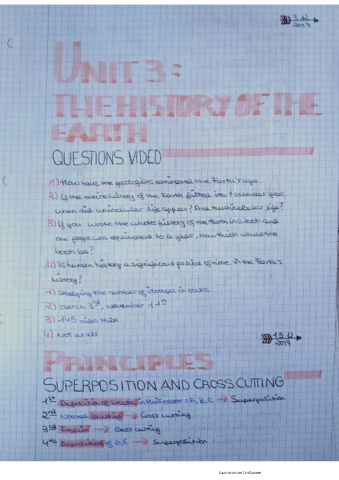 9-12
2019
UNIT 3:
THE HISTORY OF THE
EARTH
QUESTIONS VIDEO
1) How have the geologists estimated the Earth's age
2) If the entire history of the Earth fitted into 1 calendar year,
when did unicellular life appear? And multicellular life?
3) If you wrote the whole history of the Earth in a book and
one page was equivalent to a year, how thick would the
book be?
4) Is human history a significant period of time in the Earth's
history?
1) Studying the number of changes in
2) March 3rd, November 11th
3) 145 miles thick
4) Not at all
13-12
2019
PRINCIPLES
SUPERPOSITION AND CROSS CUTTING
1st Deposition of strata in this order: A, B, C → Superposition
2nd Normal faulting → Cross cutting
3rd Erosion → Cross cutting
4th Deposition of D, C → Superposition